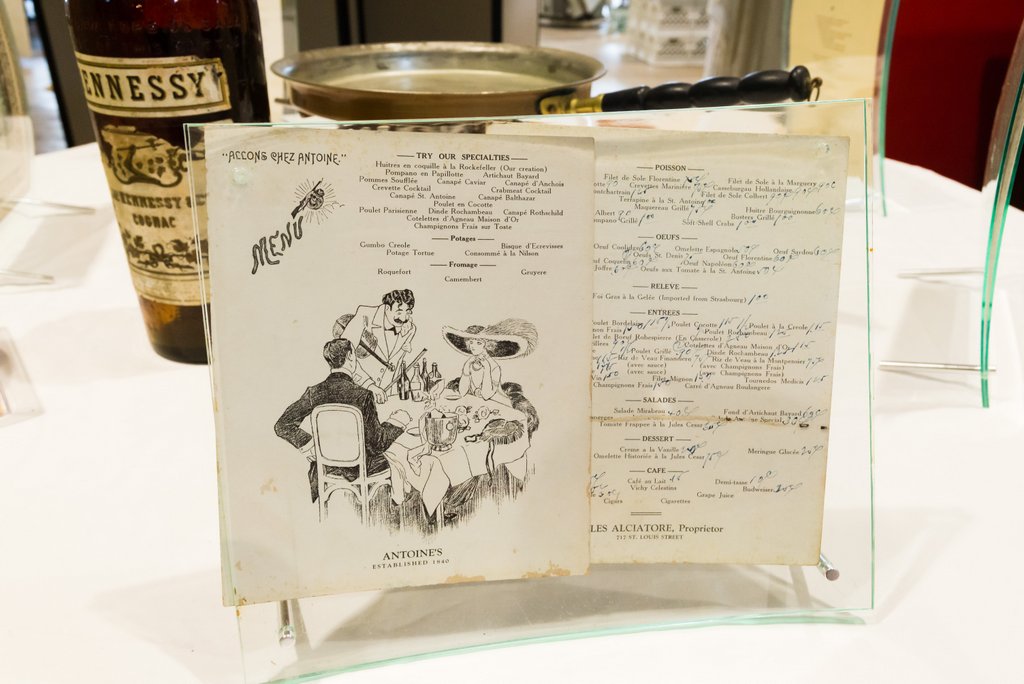 ENNESSY
HENNESSY & C
COGNAC
"ALLONS CHEZ ANTOINE."
MENU
TRY OUR SPECIALTIES
Huitres en coquille à la Rockefeller (Our creation)
Pompano en Papillotte Artichaut Bayard
Pommes Soufflée Canapé Caviar Canapé d'Anchois
Crevette Cocktail Crabmeat Cocktail
Canapé St. Antoine Canapé Balthazar
Poulet en Cocotte
Poulet Parisienne Dinde Rochambeau Canapé Rothschild
Cotelettes d'Agneau Maison d'Or
Champignons Frais sur Toste
Potages
Gumbo Creole Bisque d'Ecrevisses
Potage Tortue Consommé à la Nilson
Fromage
Roquefort Gruyere
Camembert
ANTOINE'S
ESTABLISHED 1840
POISSON
Filet de Sole Florentine Filet de Sole à la Marguery
Crevettes Marinière Casseburgau Hollandaise
Filet de Sole Colbert
Terrapine à la St. Antoine
Maquereau Grillé Huitre Bourguignonne
Albert Busters Grillé
mpano Grillé Soft-Shell Crabs
OEUFS
Oeuf Coolidge Omelette Espagnole Oeuf Sardou
Oeufs St. Denis Oeuf Florentine
Oeuf Coquelin Oeuf Napoléon
Joffre Oeufs aux Tomate à la St. Antoine
RELEVE
Foi Gras à la Gelée (Imported from Strasbourg) 1.00
ENTREES
oulet Bordelais Poulet Cocotte Poulet à la Creole
non Frais Poulet Rochambeau
let de Boeuf Robespierre (En Casserole)
Cotelettes d'Agneau Maison d'Or
Poulet Grillé Dinde Rochambeau
Riz de Veau Financière Riz de Veau à la Montpensier
(avec sauce) (avec Champignons Frais)
(avec sauce) (avec Champignons Frais)
Filet Mignon Tournedos Medicis
Champignons Frais Carré d'Agneau Boulangere
SALADES
Salade Mirabeau Fond d'Artichaut Bayard
Antoine Special
Tomate Frappée à la Jules Cesar
DESSERT
Creme a la Vanille Meringue Glacée
Omelette Historiée à la Jules Cesar
CAFE
Café au Lait Demi-tasse
Vichy Celestins Budweiser
Grape Juice
Cigars Cigarettes
LES ALCIATORE, Proprietor
717 ST. LOUIS STREET